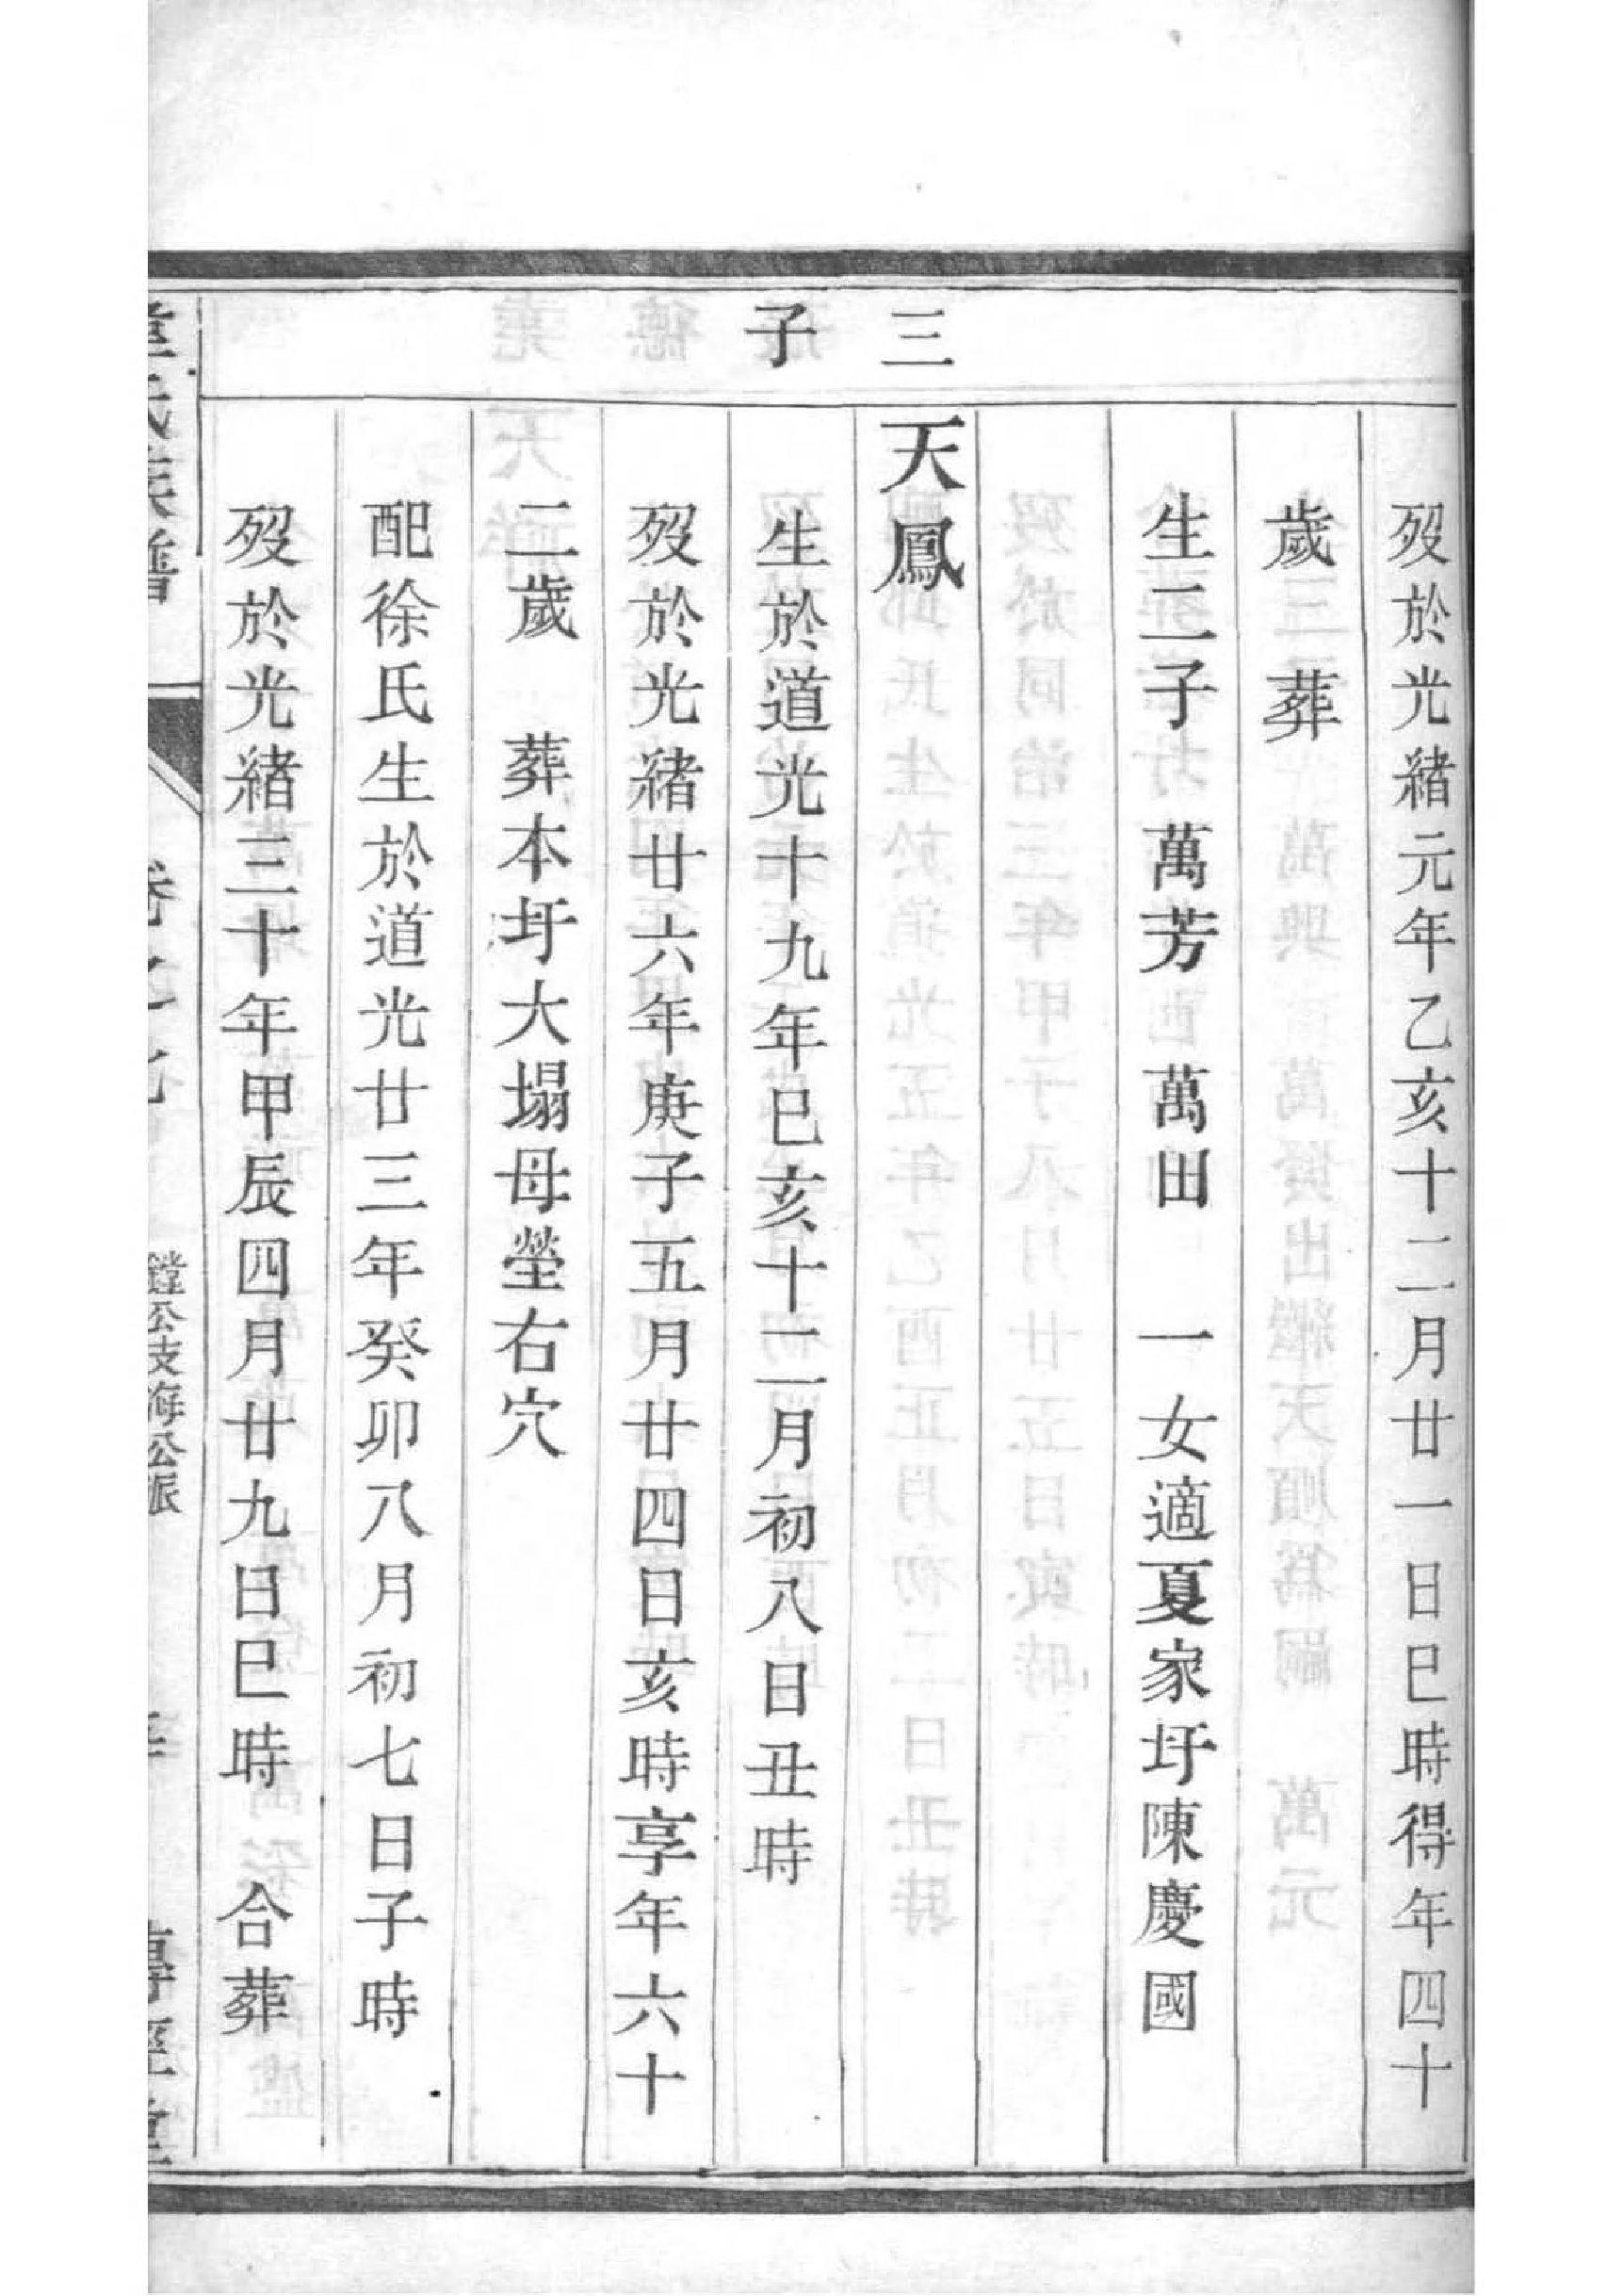 歿於光緒元年乙亥十二月廿一日巳時得年四十
歲　葬
生二子　萬芳　萬田　一女適夏家圩陳慶國
三子
天鳳
生於道光十九年已亥十二月初八日丑時
歿於光緒廿六年庚子五月廿四日亥時享年六十
二歲　葬本圩大塌母塋右穴
配徐氏生於道光廿三年癸卯八月初七日子時
歿於光緒三十年甲辰四月廿九日巳時　合葬
氏族譜
卷之七
鏜公支海公派